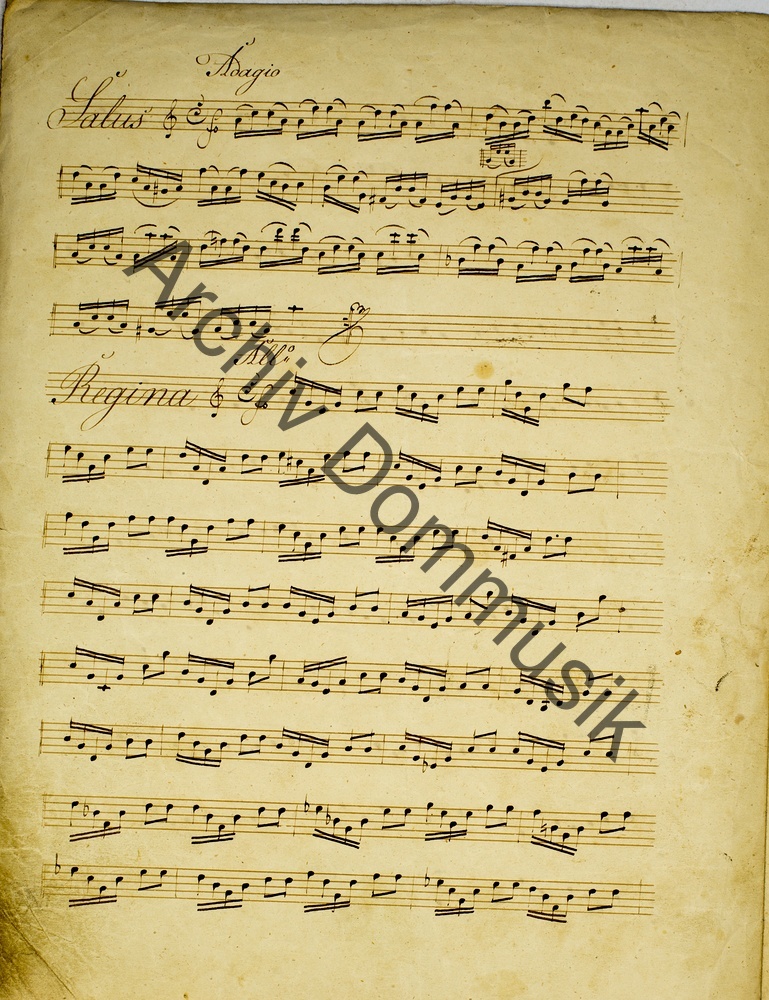 Adagio
Salus
fo
Allo
Regina
fo
Archiv Dommusik